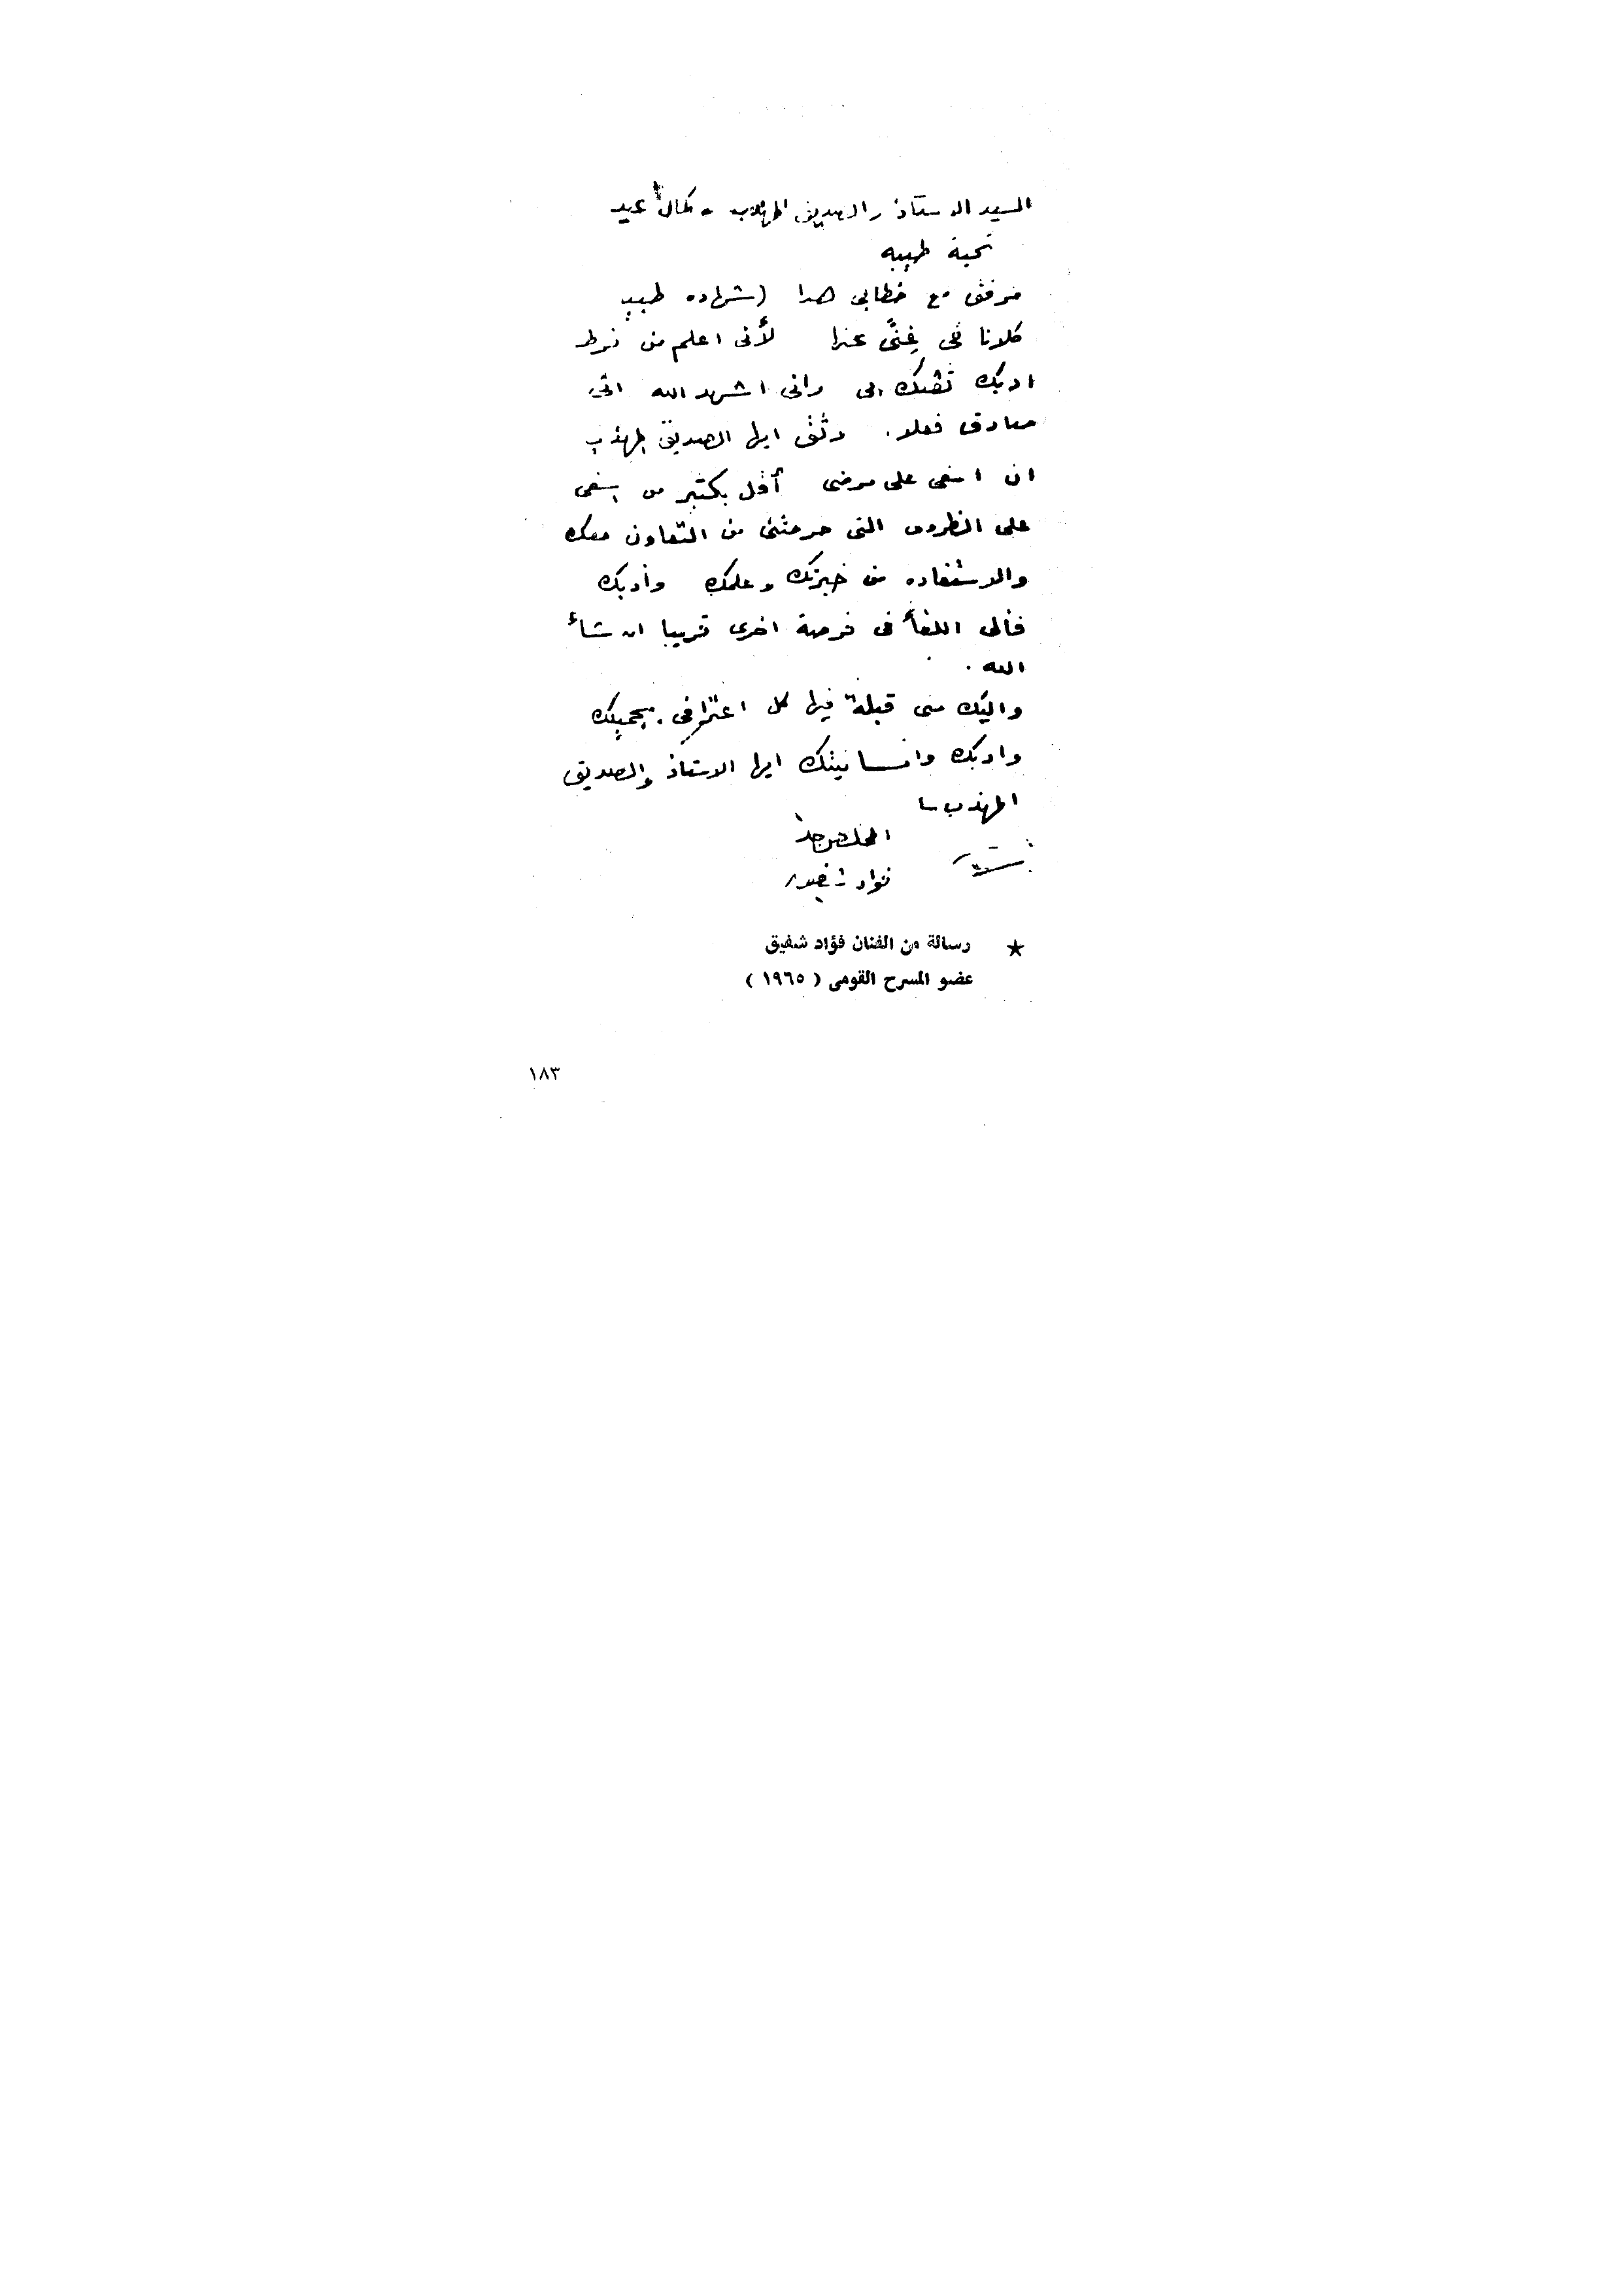 السيد الاستاذ والصديق المهذب - كمال عيد
تحية طيبه
مرفق مع خطابى هذا (شهاده طبيه
كلانا فى غِنىً عنها لأنى اعلم من فرط
ادبك ثقتك بى وانى اشهد الله انى
صادق فعلا. وثق ايها الصديق المهذب
ان اسفى على مرضى أقل بكثير من اسفى
على الظروف التى حرمتنى من التعاون معك
والاستفاده من خبرتك وعلمك وأدبك
فالى اللقأ فى فرصة اخرى قريبا ان شاء
الله .
واليك منى قبلة فيها كل اعترافى بجميلك
وادبك وانسانيتك ايها الاستاذ والصديق
المهذب
المخلص جدا
فؤاد شفيق
★ رسالة من الفنان فؤاد شفيق
عضو المسرح القومى ( ١٩٦٥ )
١٨٣